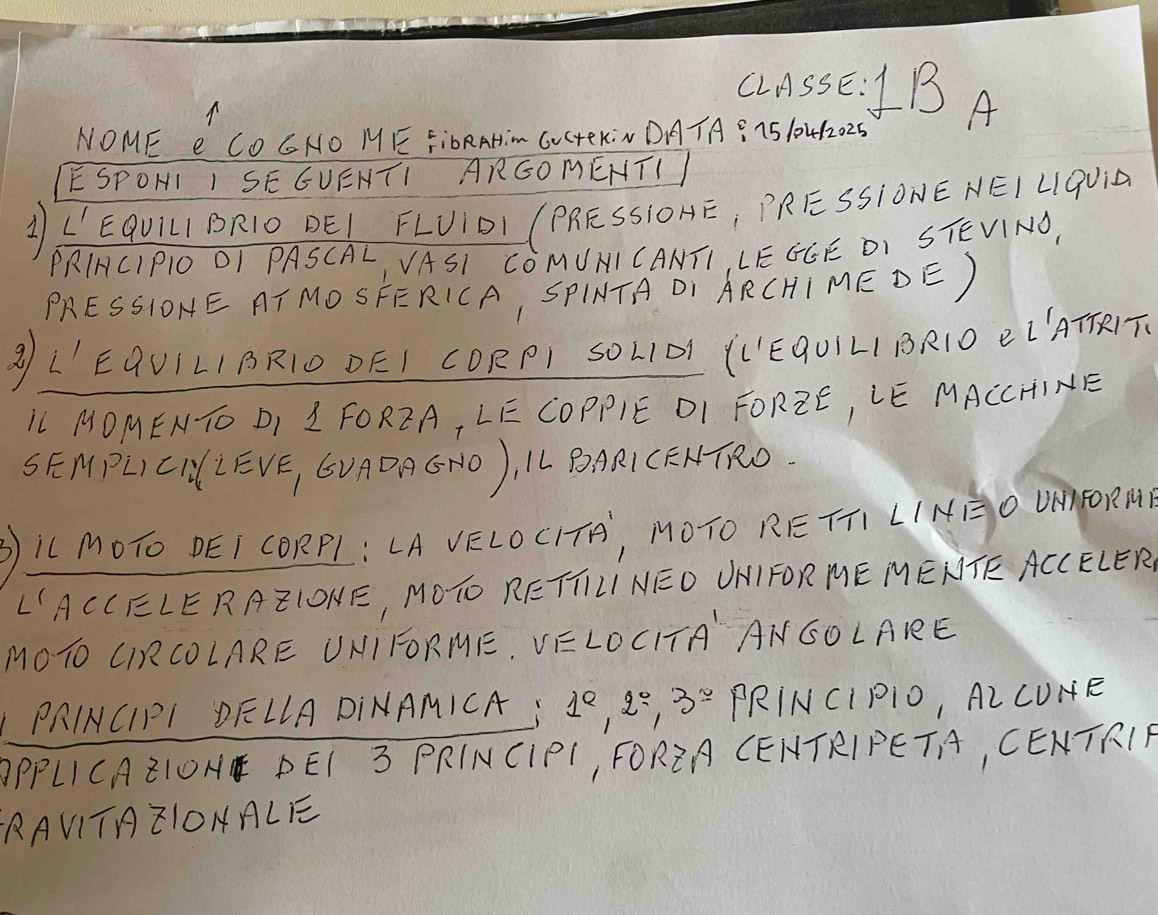 CLASSE: 1B A
NOME e COGNOME: ibRAHim GUCteKiN DATA: 15/04/2025
ESPONI I SEGUENTI ARGOMENTI
1) L'EQUILIBRIO DEI FLUIDI (PRESSIONE, PRESSIONE NEI LIQUID
PRINCIPIO DI PASCAL, VASI COMUNICANTI, LEGGE DI STEVINO,
PRESSIONE ATMOSFERICA, SPINTA DI ARCHIMEDE)
2) L'EQUILIBRIO DEI CORPI SOLIDI (L'EQUILIBRIO e L'ATTRIT
IL MOMENTO DI 1 FORZA, LE COPPIE DI FORZE, LE MACCHINE
SEMPLICI (LEVE, GUADAGNO), IL BARICENTRO.
3) IL MOTO DEI CORPI: LA VELOCITÀ, MOTO RETTILINEO UNIFORME
L'ACCELERAZIONE, MOTO RETTILINEO UNIFORMEMENTE ACCELER
MOTO CIRCOLARE UNIFORME. VELOCITA' ANGOLARE
I PRINCIPI DELLA DINAMICA: 1º, 2º, 3º PRINCIPIO, ALCUNE
APPLICAZIONI DEI 3 PRINCIPI, FORZA CENTRIPETA, CENTRIF
RAVITAZIONALE